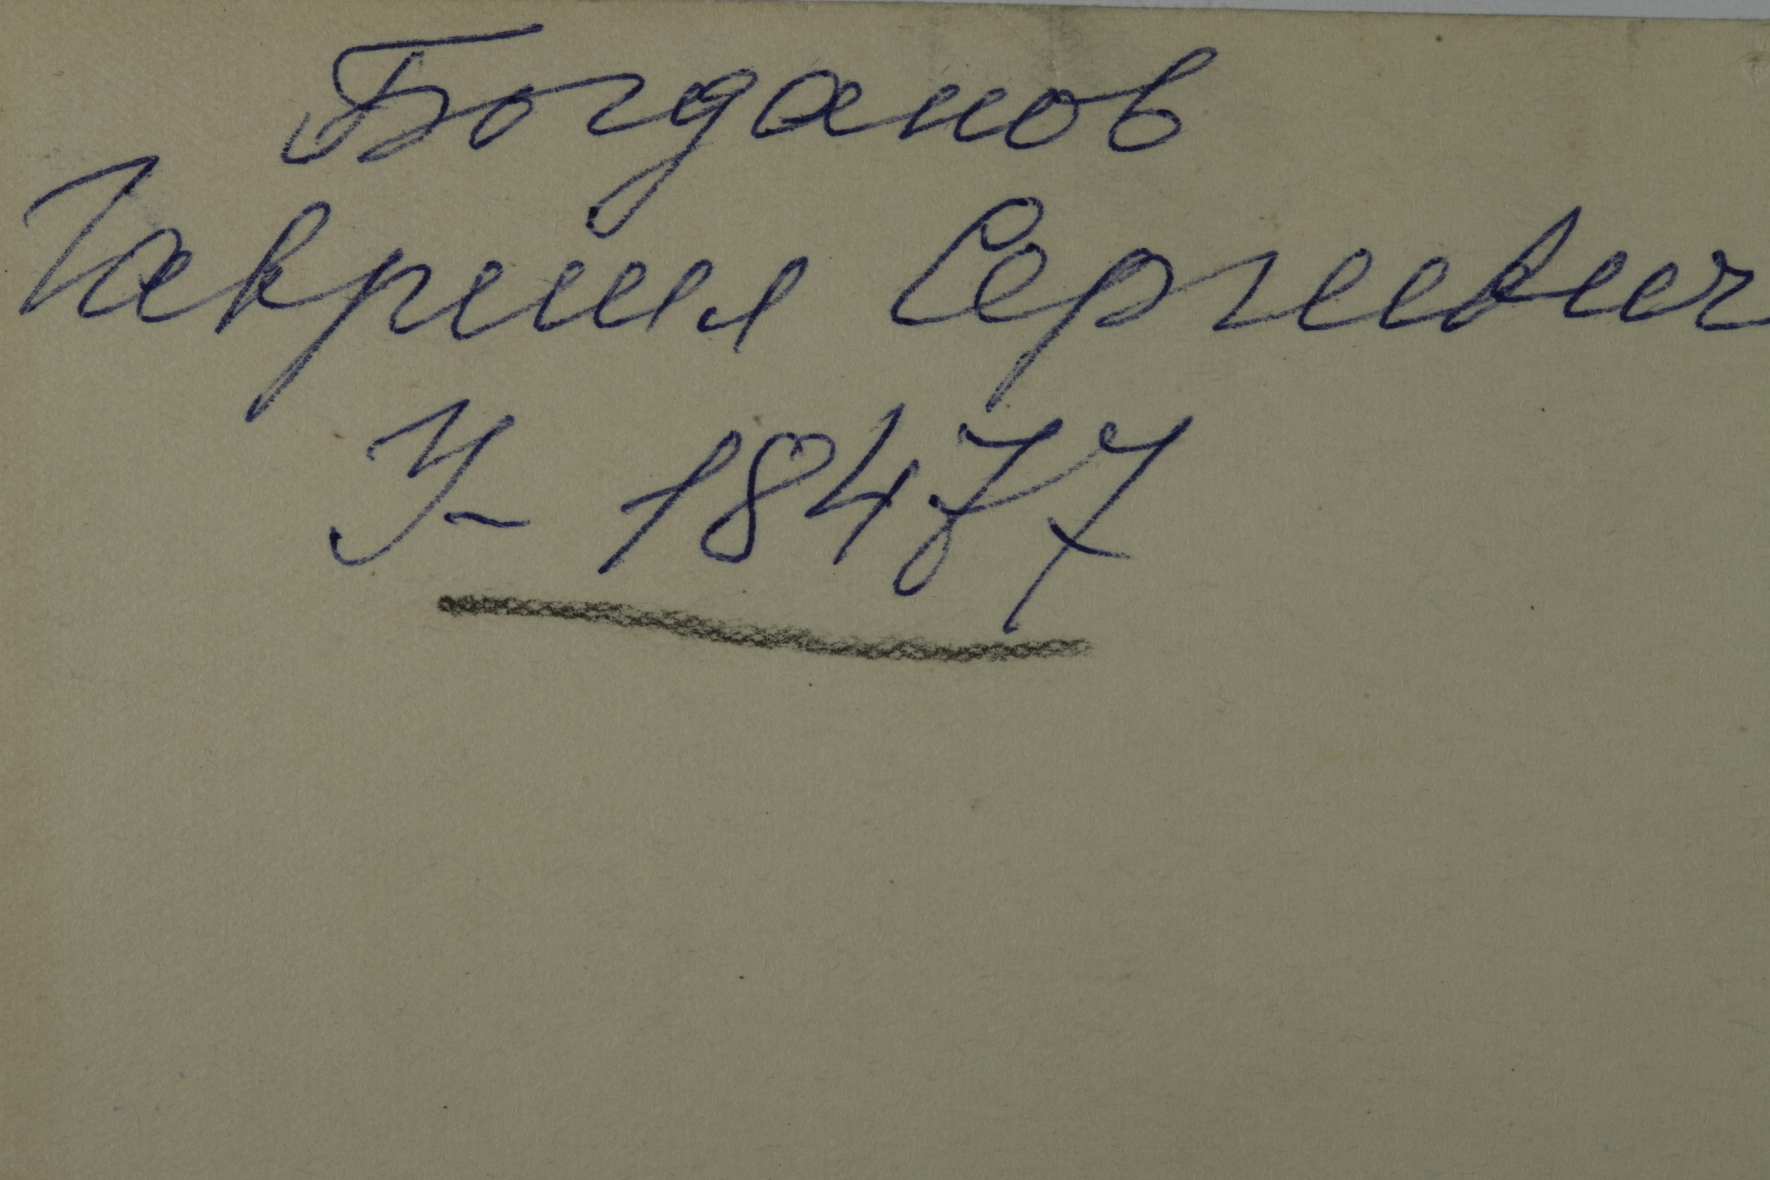 Богданов
Гавриил Сергеевич
У- 18477